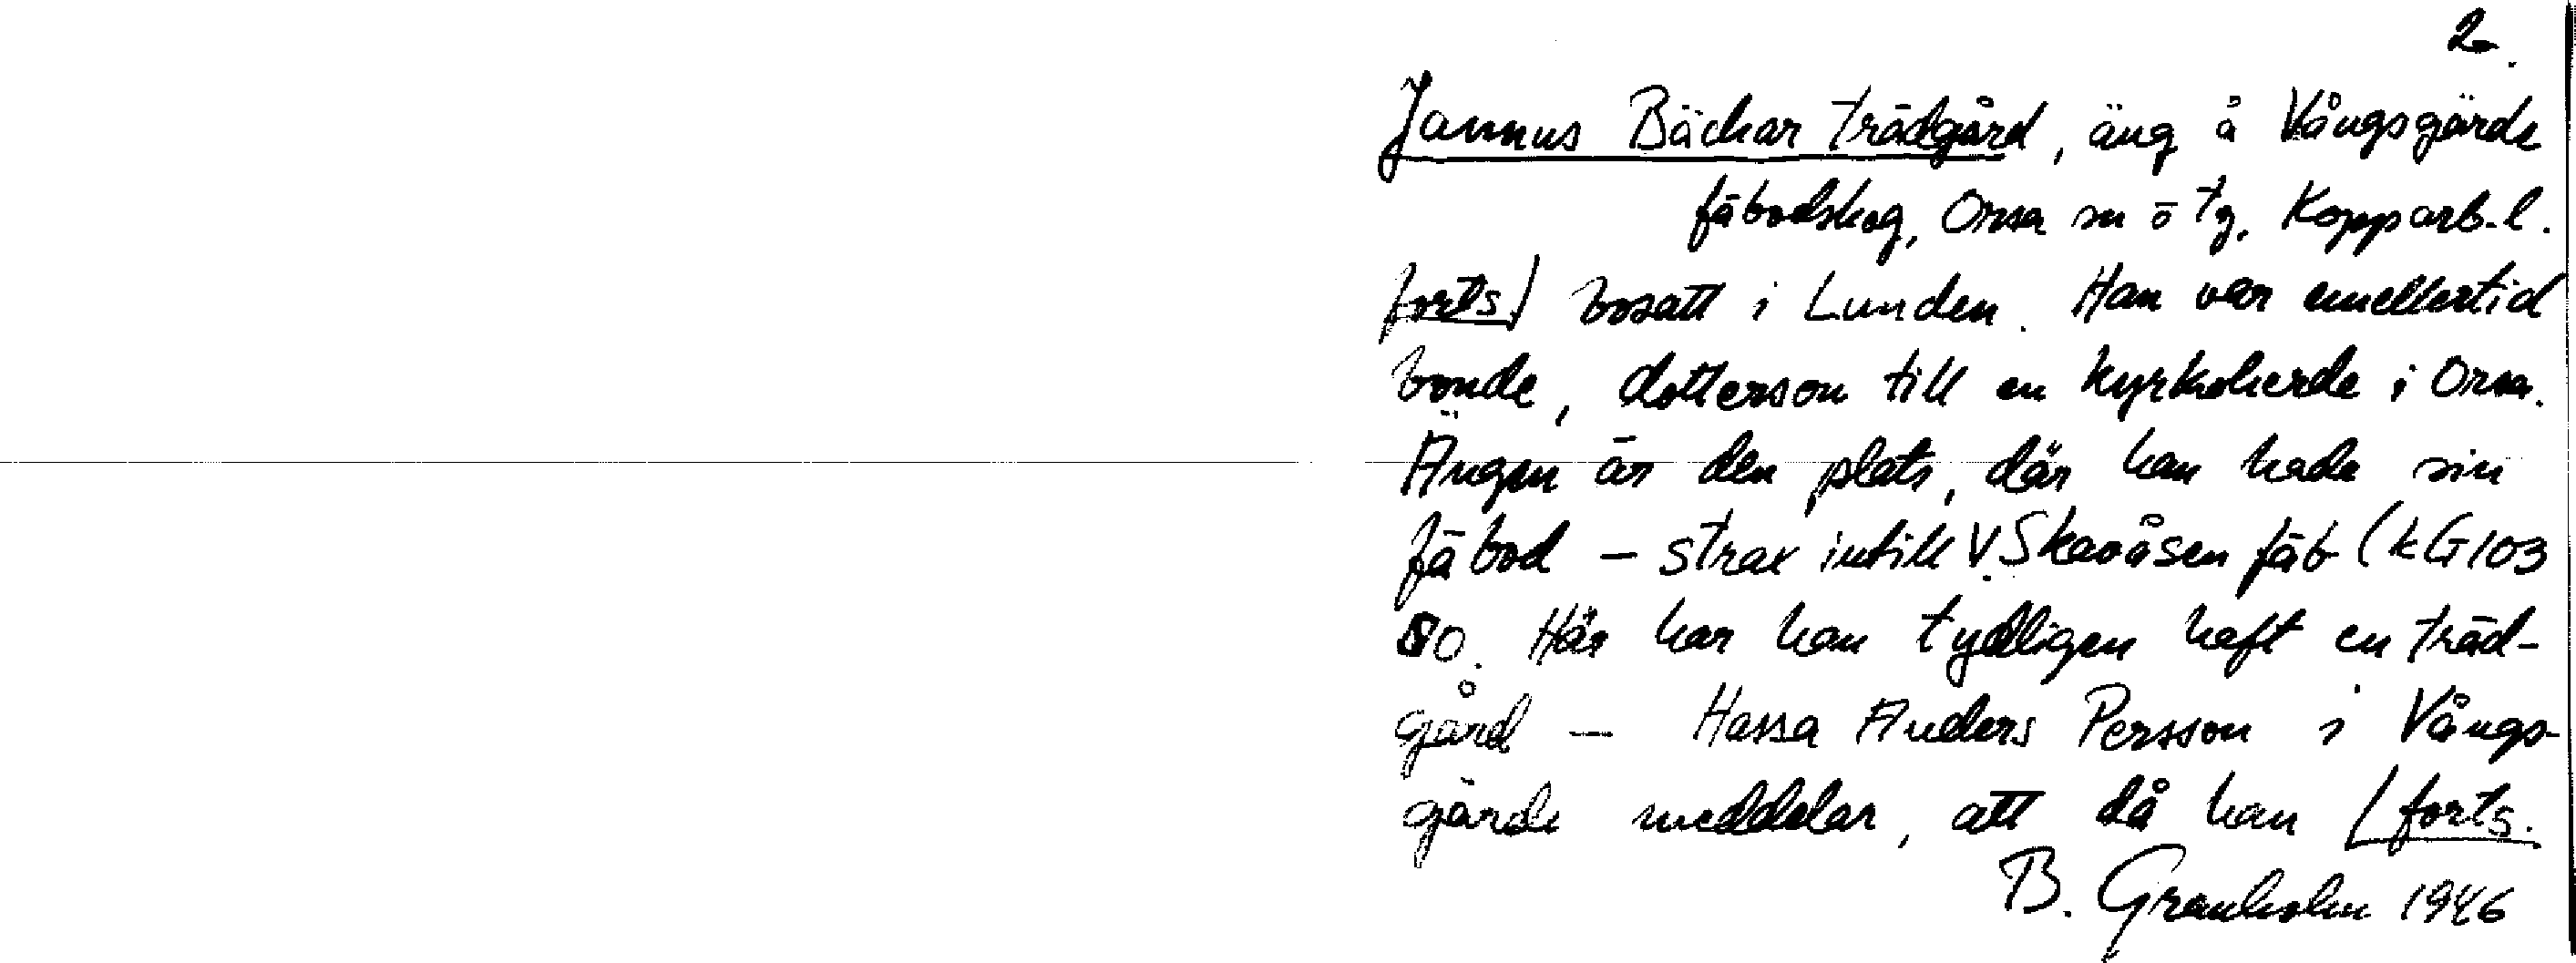 2.
Jannus Bäckar trädgård, äng å Vångsgärde
fäbodskog, Orsa sn ö tg, Kopparb. l.
forts) bosatt i Lunden. Han var emellertid
bonde, dotterson till en kyrkoherde i Orsa.
Ängen är den plats, där han hade sin
fäbod - strax intill V. Skavåsen fäb (kG103
80. Här har han tydligen haft en träd-
gård - Hassa Anders Persson i Vångs-
gärde meddelar, att då han (forts.
B. Granholm 1946